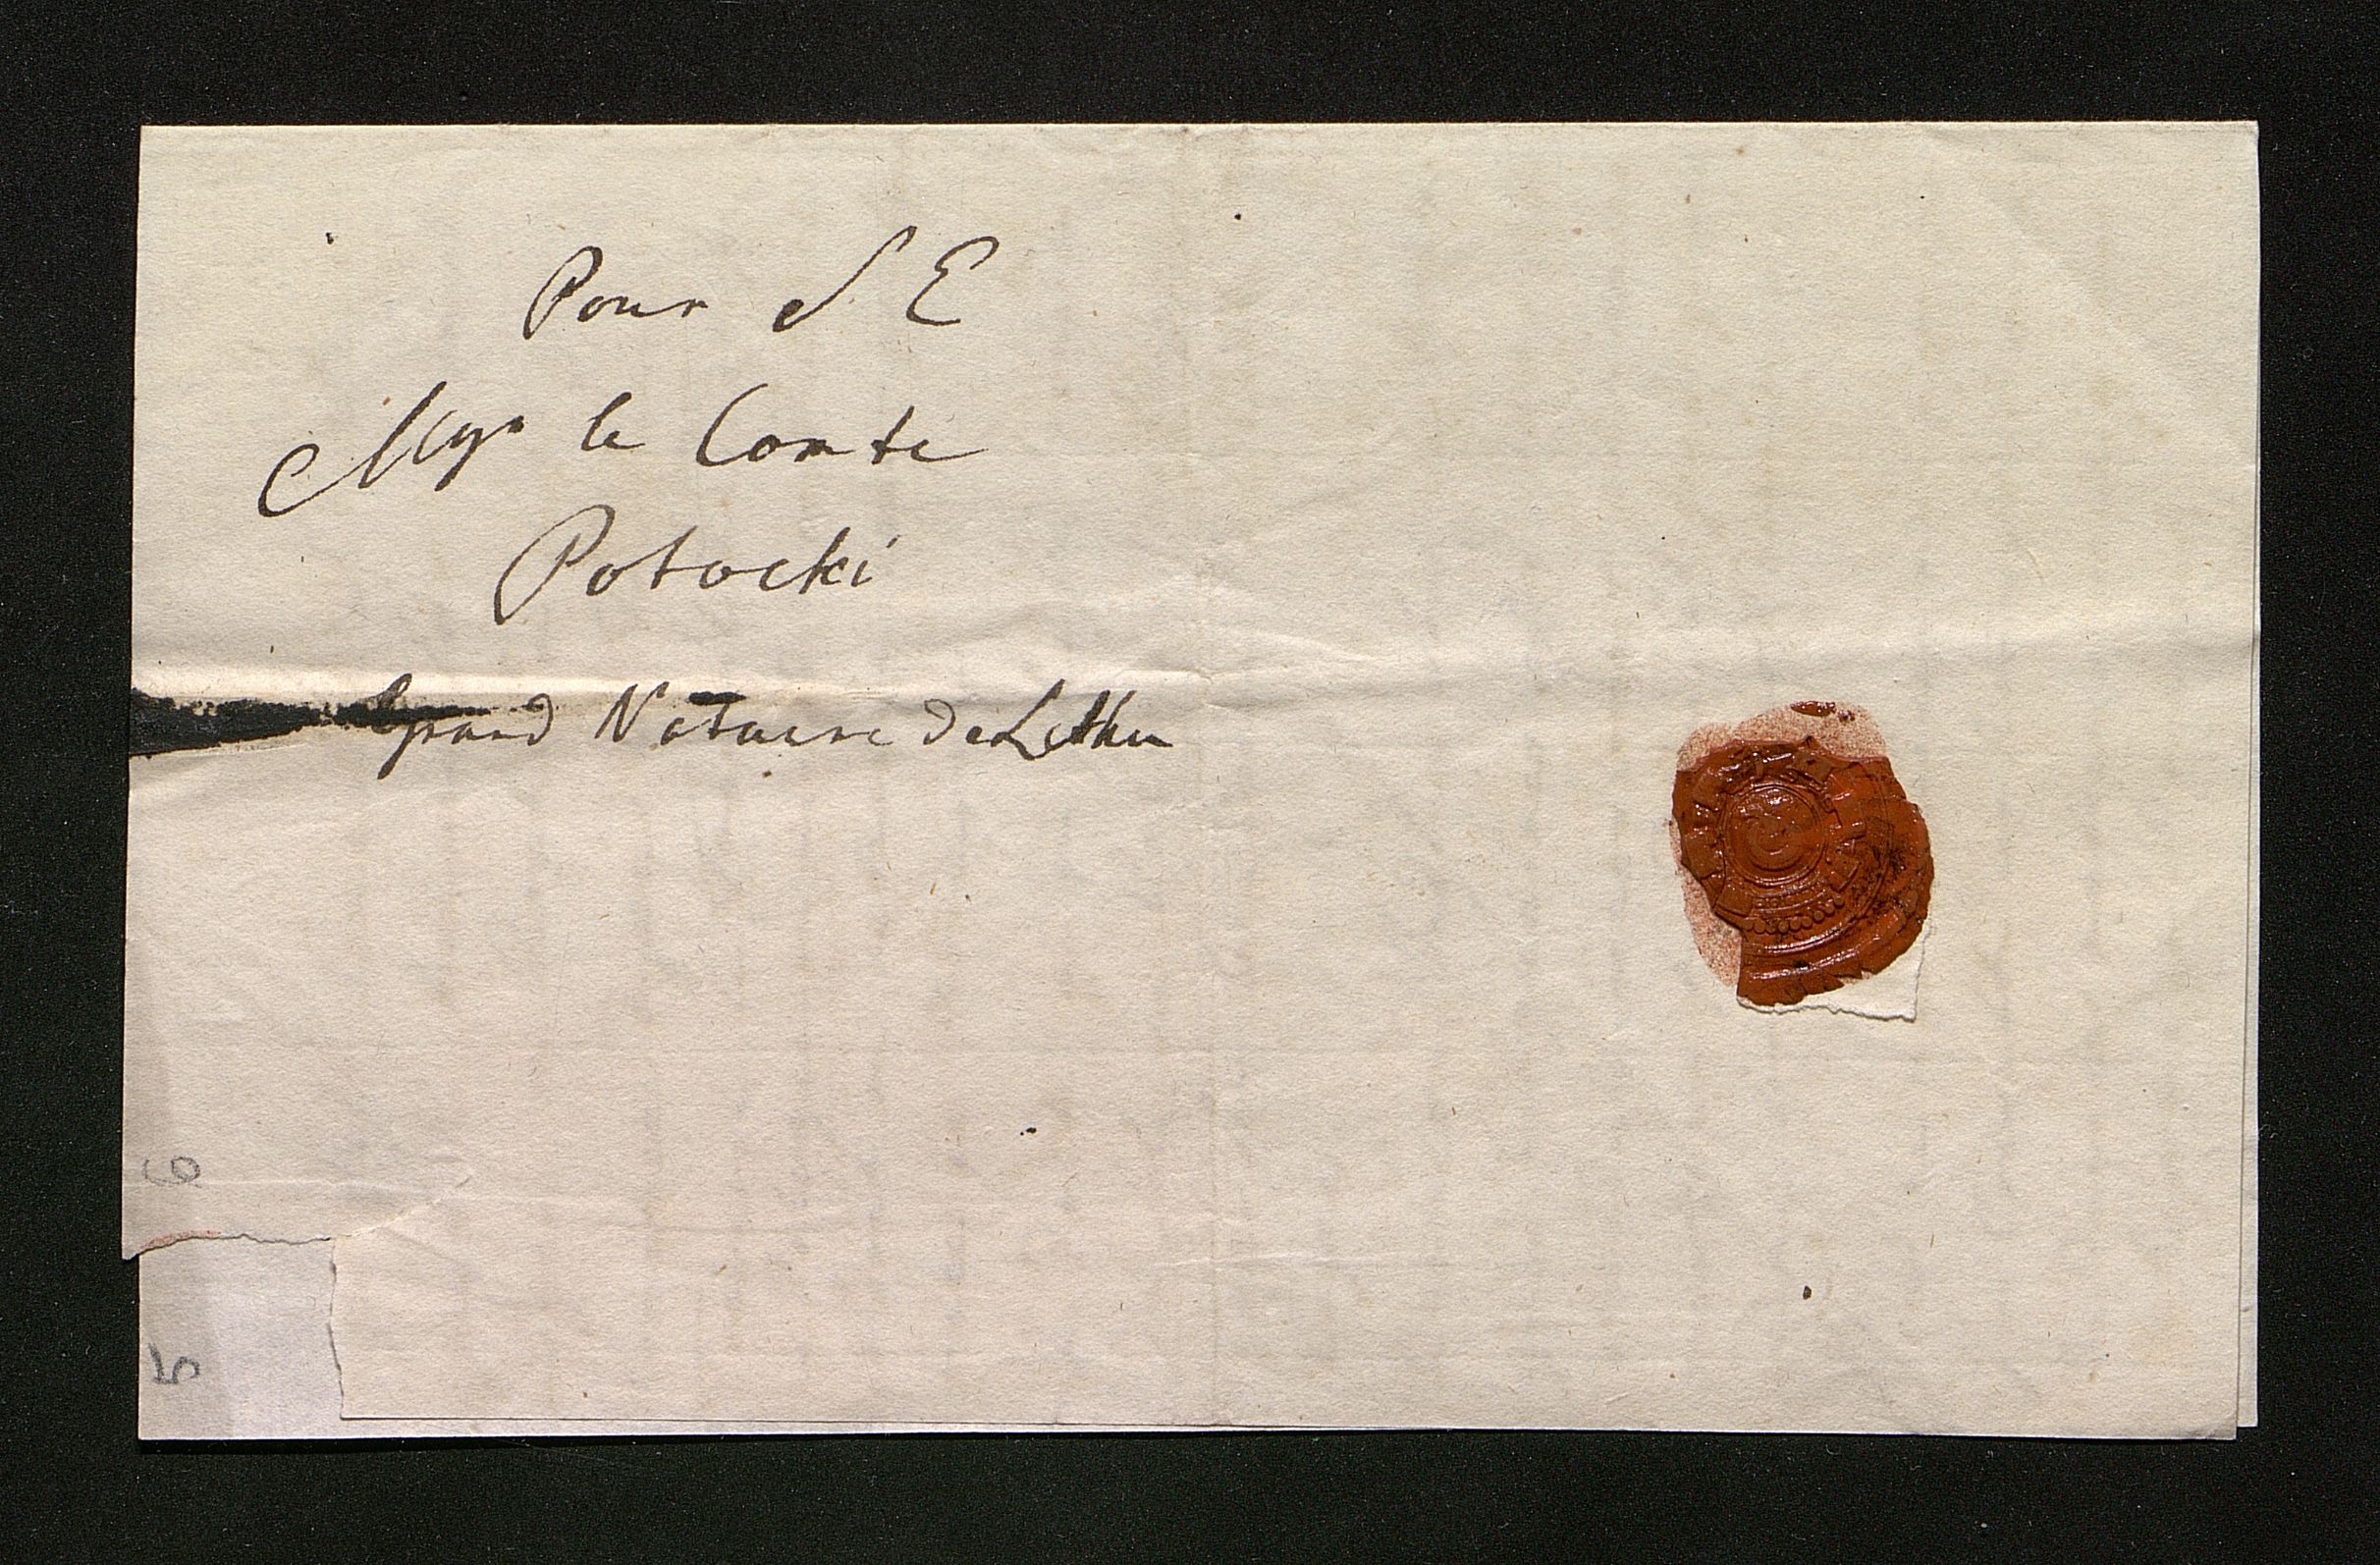 Pour S E
Mgr le Comte
Potocki
Grand Notaire de Lithu
6
5